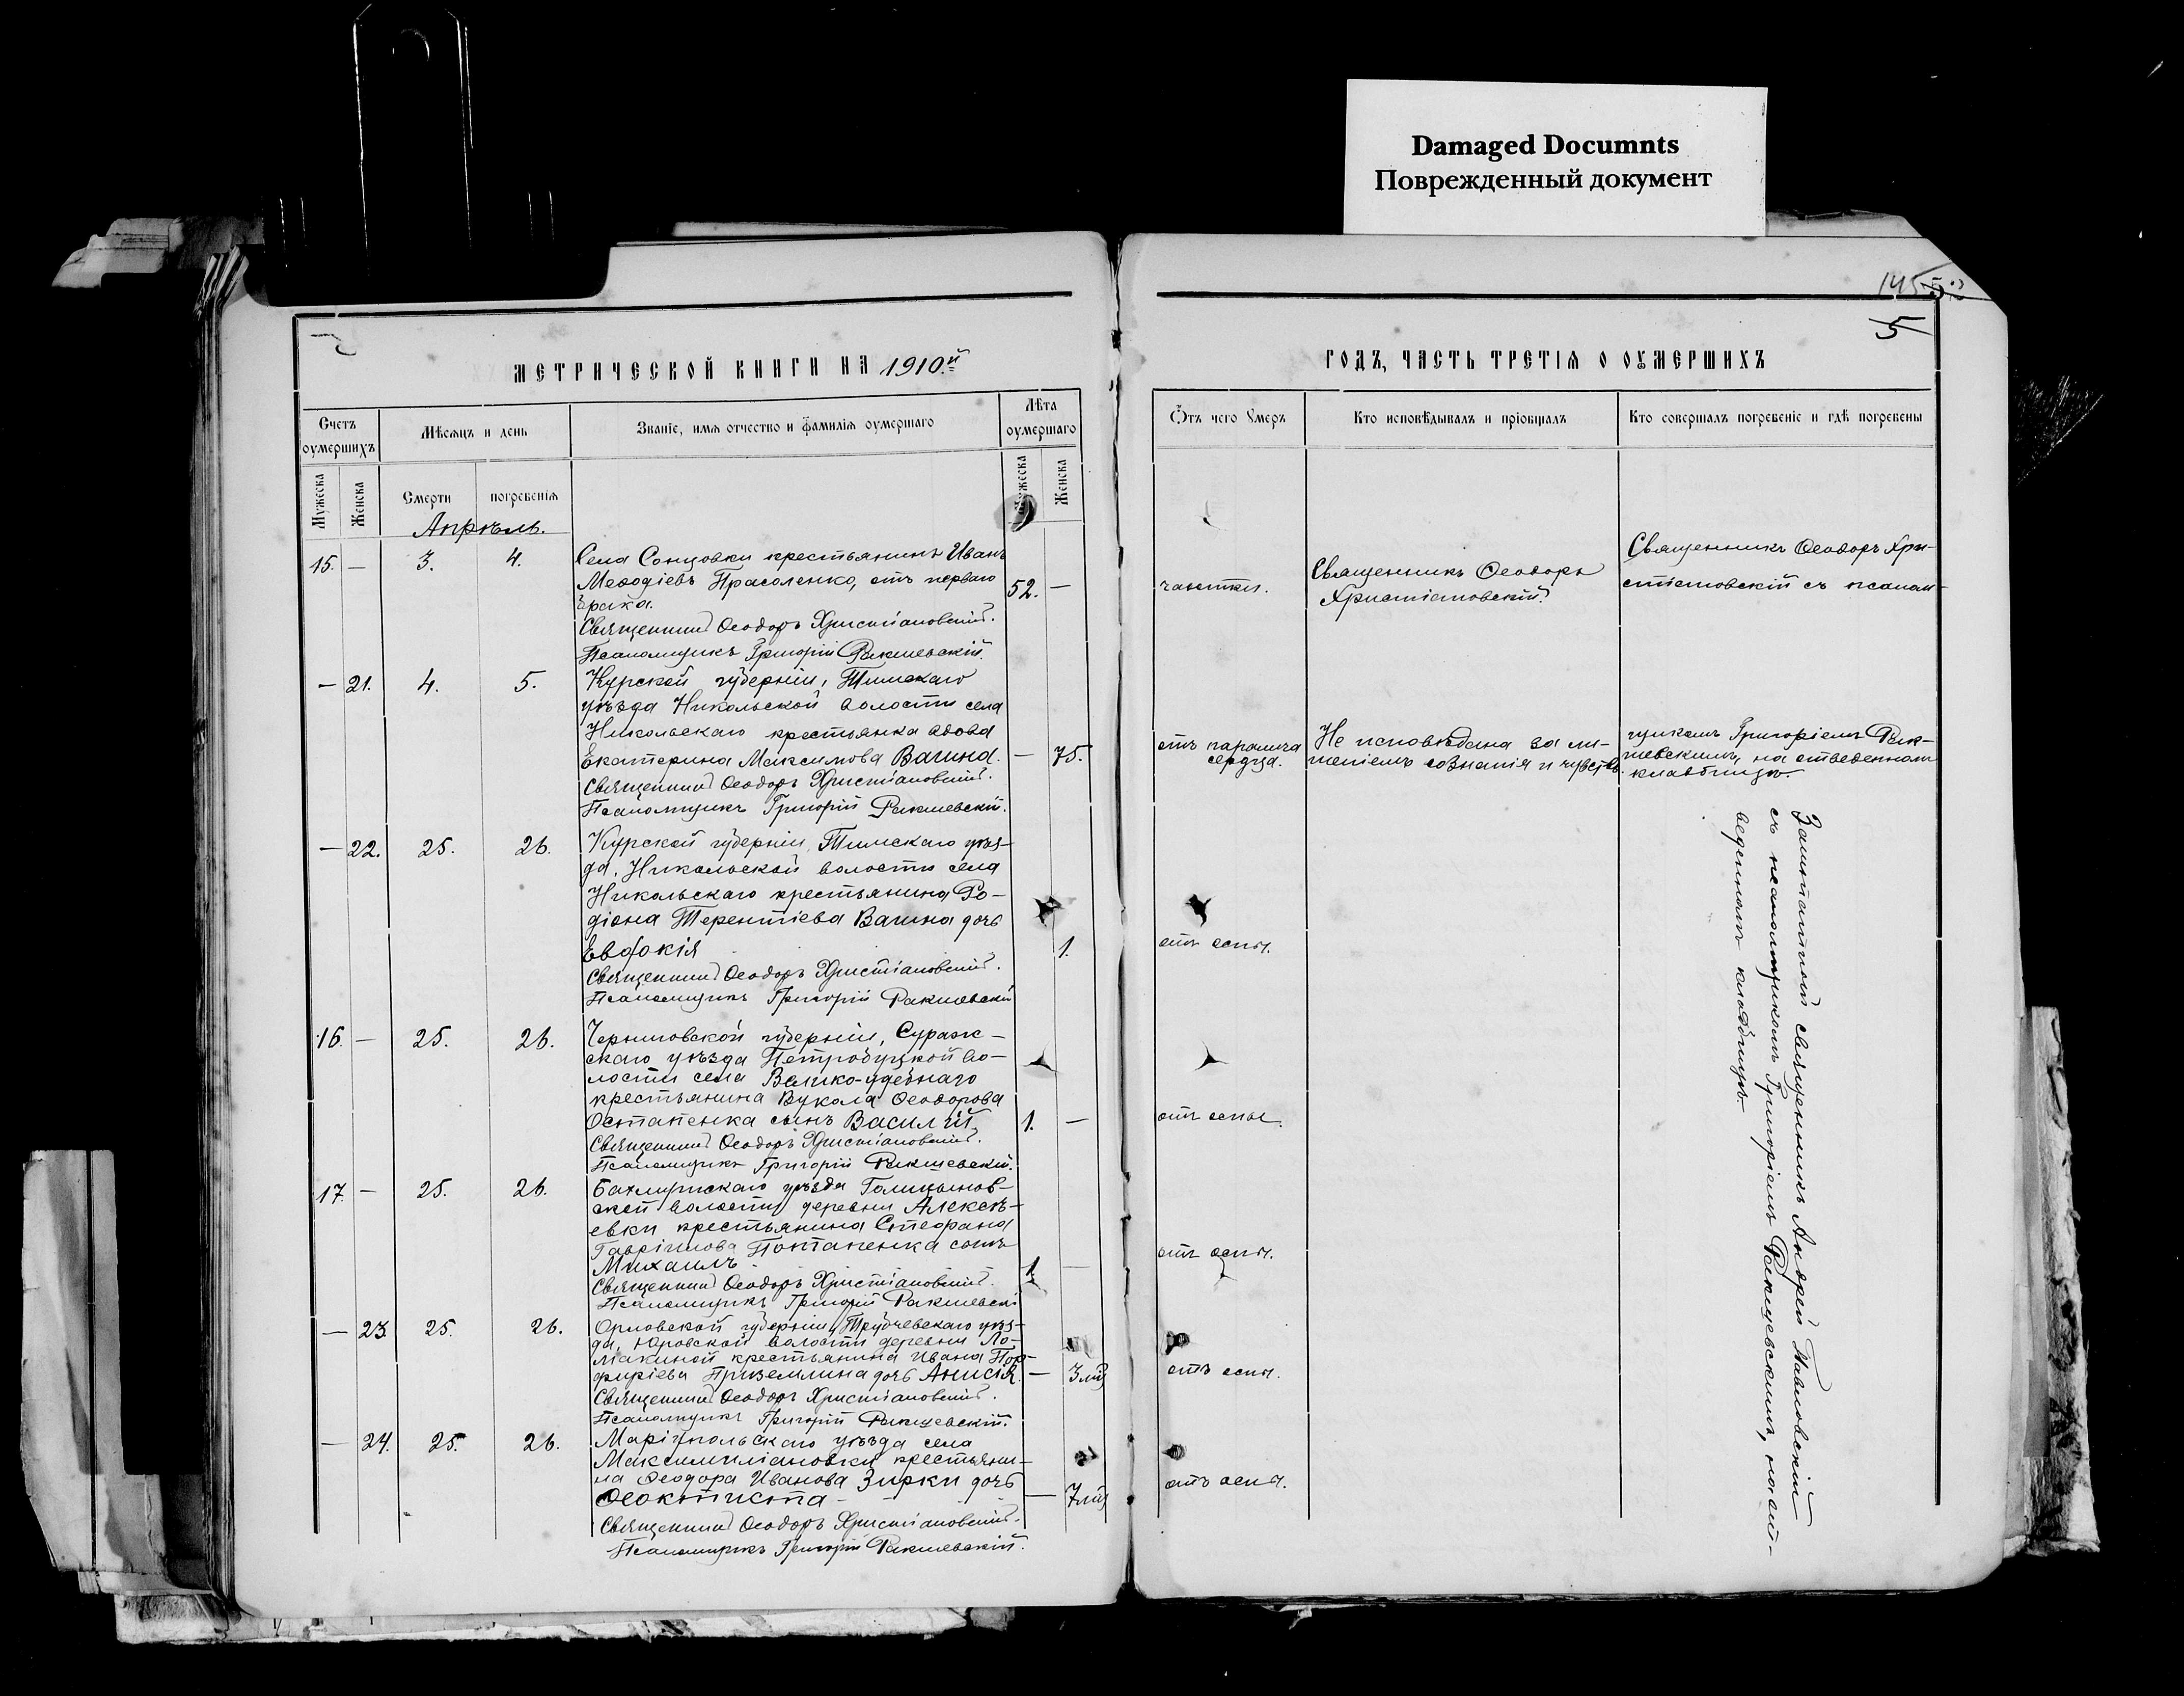 Damaged Documnts
Поврежденный документ
145
5
МЕТРИЧЕСКОЙ КНИГИ НА 1910й
ГОДЪ, ЧАСТЬ ТРЕТІЯ О ОУМЕРШИХЪ
Счетъ оумершихъ
Мѣсяцъ и день
Званіе, имя отчество и фамилія оумершаго
Лѣта оумершаго
Отъ чего Умеръ
Кто исповѣдывалъ и пріобщалъ
Кто совершалъ погребеніе и гдѣ погребены
Мужеска
Женска
Смерти
погребенія
Мужеска
Женска
Апрѣль.
15. — 3. 4. Села Сонцовки крестьянинъ Иванъ
Меѳодіевъ Прасоленко, отъ перваго
брака. 52. — чахотки.
Священникъ Ѳеодоръ Христіановскій.
Псаломщикъ Григорій Ракшевскій.
Священникъ Ѳеодоръ
Христіановскій.
Священникъ Ѳеодоръ Хри-
стіановскій съ псалом-
— 21. 4. 5. Курской губерніи, Тимскаго
уѣзда Никольской волости села
Никольскаго крестьянка вдова
Екатерина Максимова Вагина. — 75.
Священникъ Ѳеодоръ Христіановскій.
Псаломщикъ Григорій Ракшевскій.
отъ паралича
сердца.
Не исповѣдана за ли-
шеніемъ сознанія и чувствъ.
щикомъ Григоріемъ Рак-
шевскимъ, на отведенномъ
кладбищѣ.
— 22. 25. 26. Курской губерніи, Тимскаго уѣз-
да, Никольской волости села
Никольскаго крестьянина Ро-
діона Терентіева Вагина дочь
Евдокія 1. отъ оспы.
Священникъ Ѳеодоръ Христіановскій.
Псаломщикъ Григорій Ракшевскій
16. — 25. 26. Черниговской губерніи, Сураж-
скаго уѣзда Петробуцкой во-
лости села Велико-удебнаго
крестьянина Вукола Ѳеодорова
Остапенка сынъ Василій. 1. — отъ оспы.
Священникъ Ѳеодоръ Христіановскій.
Псаломщикъ Григорій Ракшевскій.
17. — 25. 26. Бахмутскаго уѣзда Голицынов-
ской волости деревни Алексѣ-
евки крестьянина Стефана
Гавріилова Потапенка сынъ
Михаилъ 1. — отъ оспы.
Священникъ Ѳеодоръ Христіановскій.
Псаломщикъ Григорій Ракшевскій
— 23. 25. 26. Орловской губерніи, Трубчевскаго уѣз-
да, Юровской волости деревни Ло-
макиной крестьянина Ивана Пор-
фиріева Приземлина дочь Анисія. — 3 мѣс отъ оспы.
Священникъ Ѳеодоръ Христіановскій.
Псаломщикъ Григорій Ракшевскій.
— 24. 25. 26. Маріупольскаго уѣзда села
Максимиліановки крестьяни-
на Ѳеодора Иванова Зирки дочь
Ѳеоктиста — 7 мѣс отъ оспы.
Священникъ Ѳеодоръ Христіановскій.
Псаломщикъ Григорій Ракшевскій.
Заштатный священникъ Андрей Павловскій
съ псаломщикомъ Григоріемъ Ракшевскимъ, на от-
веденномъ кладбищѣ.